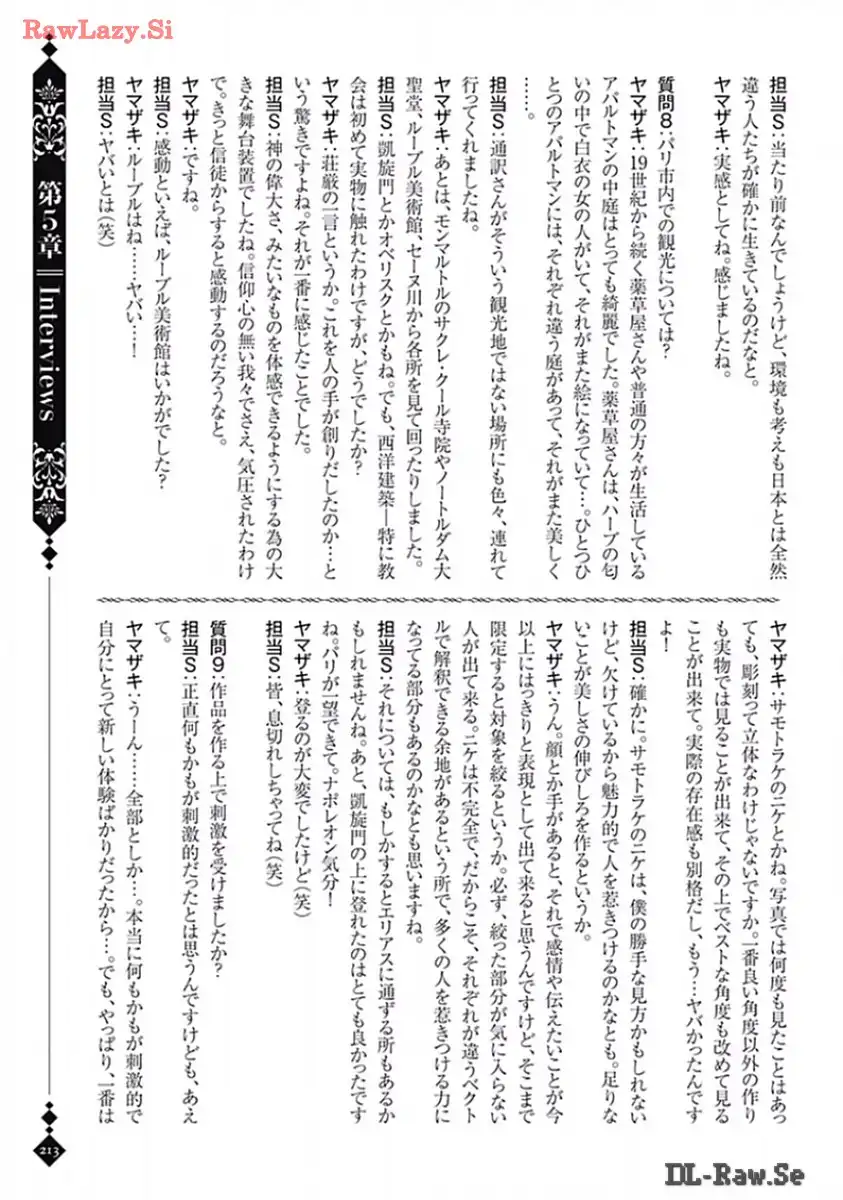 RawLazy.Si
第5章 Interviews
担当S：当たり前なんでしょうけど、環境も考えも日本とは全然
違う人たちが確かに生きているのだなと。
ヤマザキ：実感としてね。感じましたね。
質問8：パリ市内での観光については？
ヤマザキ：19世紀から続く薬草屋さんや普通の方々が生活している
アパルトマンの中庭はとっても綺麗でした。薬草屋さんは、ハーブの匂
いの中で白衣の女の人がいて、それがまた絵になっていて…。ひとつひ
とつのアパルトマンには、それぞれ違う庭があって、それがまた美しく
……。
担当S：通訳さんがそういう観光地ではない場所にも色々、連れて
行ってくれましたね。
ヤマザキ：あとは、モンマルトルのサクレ・クール寺院やノートルダム大
聖堂、ルーブル美術館、セーヌ川から各所を見て回ったりしました。
担当S：凱旋門とかオベリスクとかもね。でも、西洋建築―特に教
会は初めて実物に触れたわけですが、どうでしたか？
ヤマザキ：荘厳の一言というか。これを人の手が創りだしたのか…と
いう驚きですよね。それが一番に感じたことでした。
担当S：神の偉大さ、みたいなものを体感できるようにする為の大
きな舞台装置でしたね。信仰心の無い我々でさえ、気圧されたわけ
で。きっと信徒からすると感動するのだろうなと。
ヤマザキ：ですね。
担当S：感動といえば、ルーブル美術館はいかがでした？
ヤマザキ：ルーブルはね……ヤバい…！
担当S：ヤバいとは（笑）
ヤマザキ：サモトラケのニケとかね。写真では何度も見たことはあっ
ても、彫刻って立体なわけじゃないですか。一番良い角度以外の作り
も実物では見ることが出来て、その上でベストな角度も改めて見る
ことが出来て。実際の存在感も別格だし、もう…ヤバかったんです
よ！
担当S：確かに。サモトラケのニケは、僕の勝手な見方かもしれない
けど、欠けているから魅力的で人を惹きつけるのかなとも。足りな
いことが美しさの伸びしろを作るというか。
ヤマザキ：うん。顔とか手があると、それで感情や伝えたいことが今
以上にはっきりと表現として出て来ると思うんですけど、そこまで
限定すると対象を絞るというか。必ず、絞った部分が気に入らない
人が出て来る。ニケは不完全で、だからこそ、それぞれが違うベクト
ルで解釈できる余地があるという所で、多くの人を惹きつける力に
なってる部分もあるのかなとも思いますね。
担当S：それについては、もしかするとエリアスに通ずる所もあるか
もしれませんね。あと、凱旋門の上に登れたのはとても良かったです
ね。パリが一望できて。ナポレオン気分！
ヤマザキ：登るのが大変でしたけど（笑）
担当S：皆、息切れしちゃってね（笑）
質問9：作品を作る上で刺激を受けましたか？
担当S：正直何もかもが刺激的だったとは思うんですけども、あえ
て。
ヤマザキ：うーん……全部としか…。本当に何もかもが刺激的で
自分にとって新しい体験ばかりだったから…。でも、やっぱり、一番は
213
DL-Raw.Se